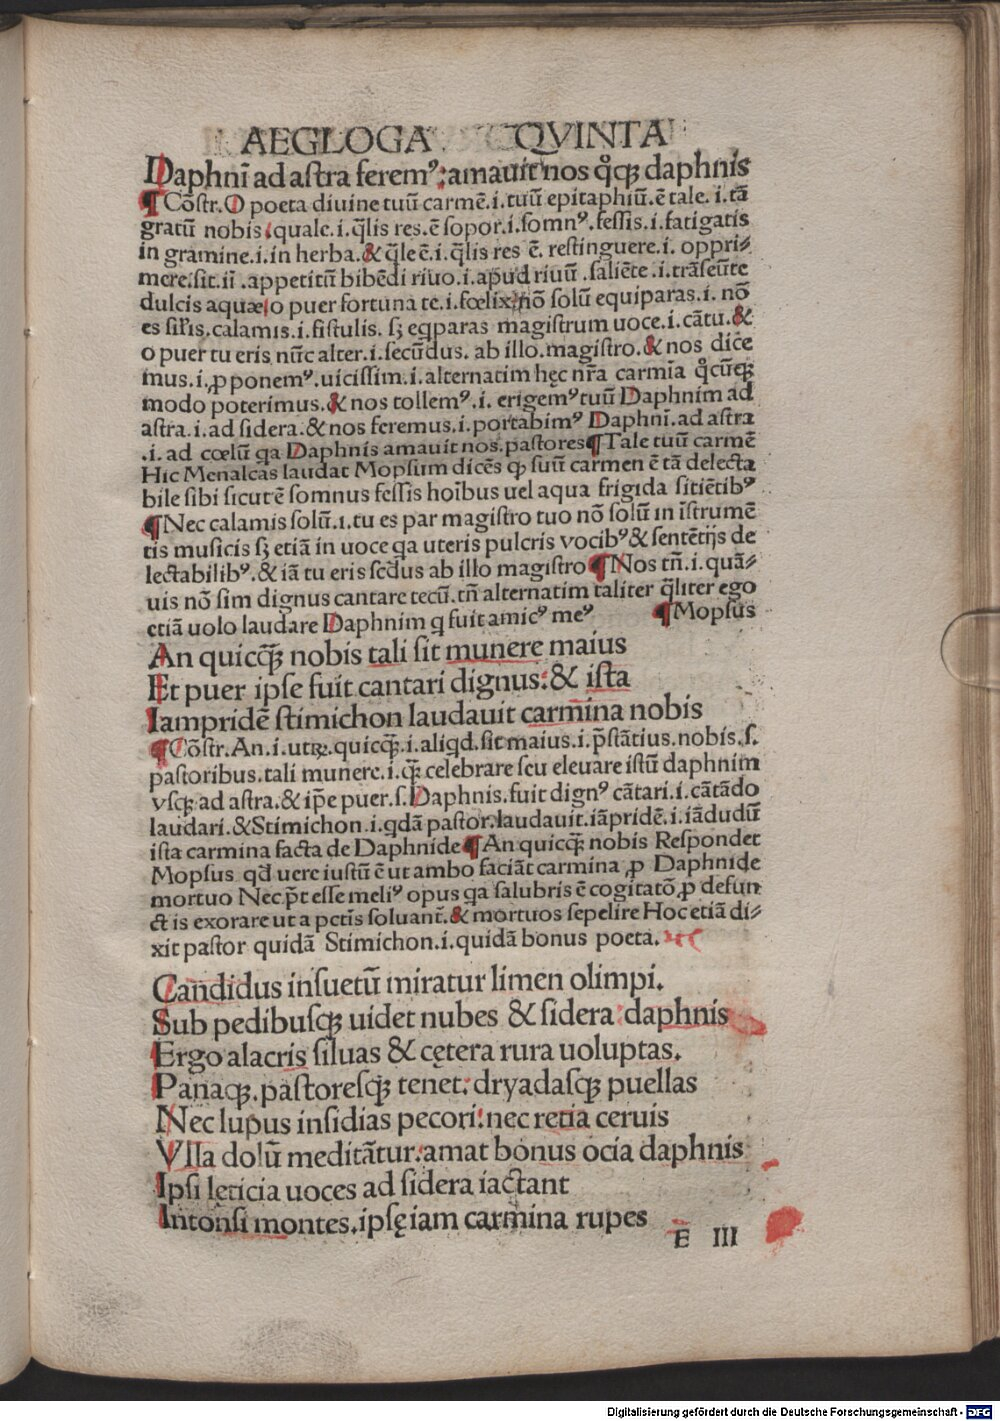 AEGLOGA QVINTA
Daphnī ad astra feremꝰ: amauit nos qͦcꝫ daphnis
¶ Cōstr. O poeta diuine tuū carmē.i. tuū epitaphiū.ē tale.i.tā
gratū nobis quale.i.q̄lis res.ē sopor.i.somnꝰ.fessis.i.fatigatis
in gramine.i.in herba.& q̄le ē.i.q̄lis res ē. restinguere.i. oppri⸗
mere.sit.iī.appetitū bibēdi riuo.i.apud riuū.saliēte.i.trāseūte
dulcis aquæ o puer fortunate.i.fœlix nō solū equiparas.i. nō
es sil̄is.calamis.i.fistulis. sꝫ eqparas magistrum uoce.i.cātu.&
o puer tu eris nūc alter.i.secūdus. ab illo.magistro.& nos dice
mus.i.ꝓponemꝰ.uicissim.i.alternatim hęc nr̄a carmīa qͦcūqꝫ
modo poterimus.& nos tollemꝰ.i. erigemꝰ tuū Daphnim ad
astra.i.ad sidera.& nos feremus.i.portabimꝰ Daphnī.ad astra
.i. ad cœlū qa Daphnis amauit nos.pastores ¶ Tale tuū carmē
Hic Menalcas laudat Mopsum dicēs ꝙ suū carmen ē tā delecta
bile sibi sicut ē somnus fessis hoībus uel aqua frigida sitiētibꝰ
¶ Nec calamis solū.i.tu es par magistro tuo nō solū in īstrumē
tis musicis sꝫ etiā in uoce qa uteris pulcris vocibꝰ & sentētijs de
lectabilibꝰ.& iā tu eris scd̄us ab illo magistro ¶ Nos tn̄.i.quā⸗
uis nō sim dignus cantare tecū.tn̄ alternatim taliter q̄liter ego
etiā uolo laudare Daphnim q fuit amicꝰ meꝰ ¶ Mopsus
An quicqꝫ̄ nobis tali sit munere maius
Et puer ipse fuit cantari dignus: & ista
Iampridē stimichon laudauit carmina nobis
¶ Cōstr. An.i.utꝝ.quicqꝫ̄.i.aliqd.sit maius.i.p̄stātius.nobis.s.
pastoribus.tali munere.i.qꝫ̄ celebrare seu eleuare istū daphnim
vsqꝫ ad astra.& ip̄e puer.s.Daphnis.fuit dignꝰ cātari.i.cātādo
laudari.& Stimichon.i.qdā pastor.laudauit.iāpridē.i.iādudū
ista carmina facta de Daphnide ¶ An quicqꝫ̄ nobis Respondet
Mopsus qd̄ uere iustū ē ut ambo faciāt carmina ꝓ Daphnide
mortuo Nec pt̄ esse meliꝰ opus qa salubris ē cogitatō ꝓ defun
ctis exorare ut a pctīs soluant̄.& mortuos sepelire Hoc etiā di⸗
xit pastor quidā Stimichon.i.quidā bonus poeta.
Candidus insuetū miratur limen olimpi.
Sub pedibusqꝫ uidet nubes & sidera daphnis
Ergo alacris siluas & cętera rura uoluptas.
Panaqꝫ.pastoresqꝫ tenet: dryadasqꝫ puellas
Nec lupus insidias pecori: nec retia ceruis
Vlla dolū meditātur: amat bonus ocia daphnis
Ipsi leticia uoces ad sidera iactant
Intonsi montes.ipsę iam carmina rupes
E III
Digitalisierung gefördert durch die Deutsche Forschungsgemeinschaft - DFG